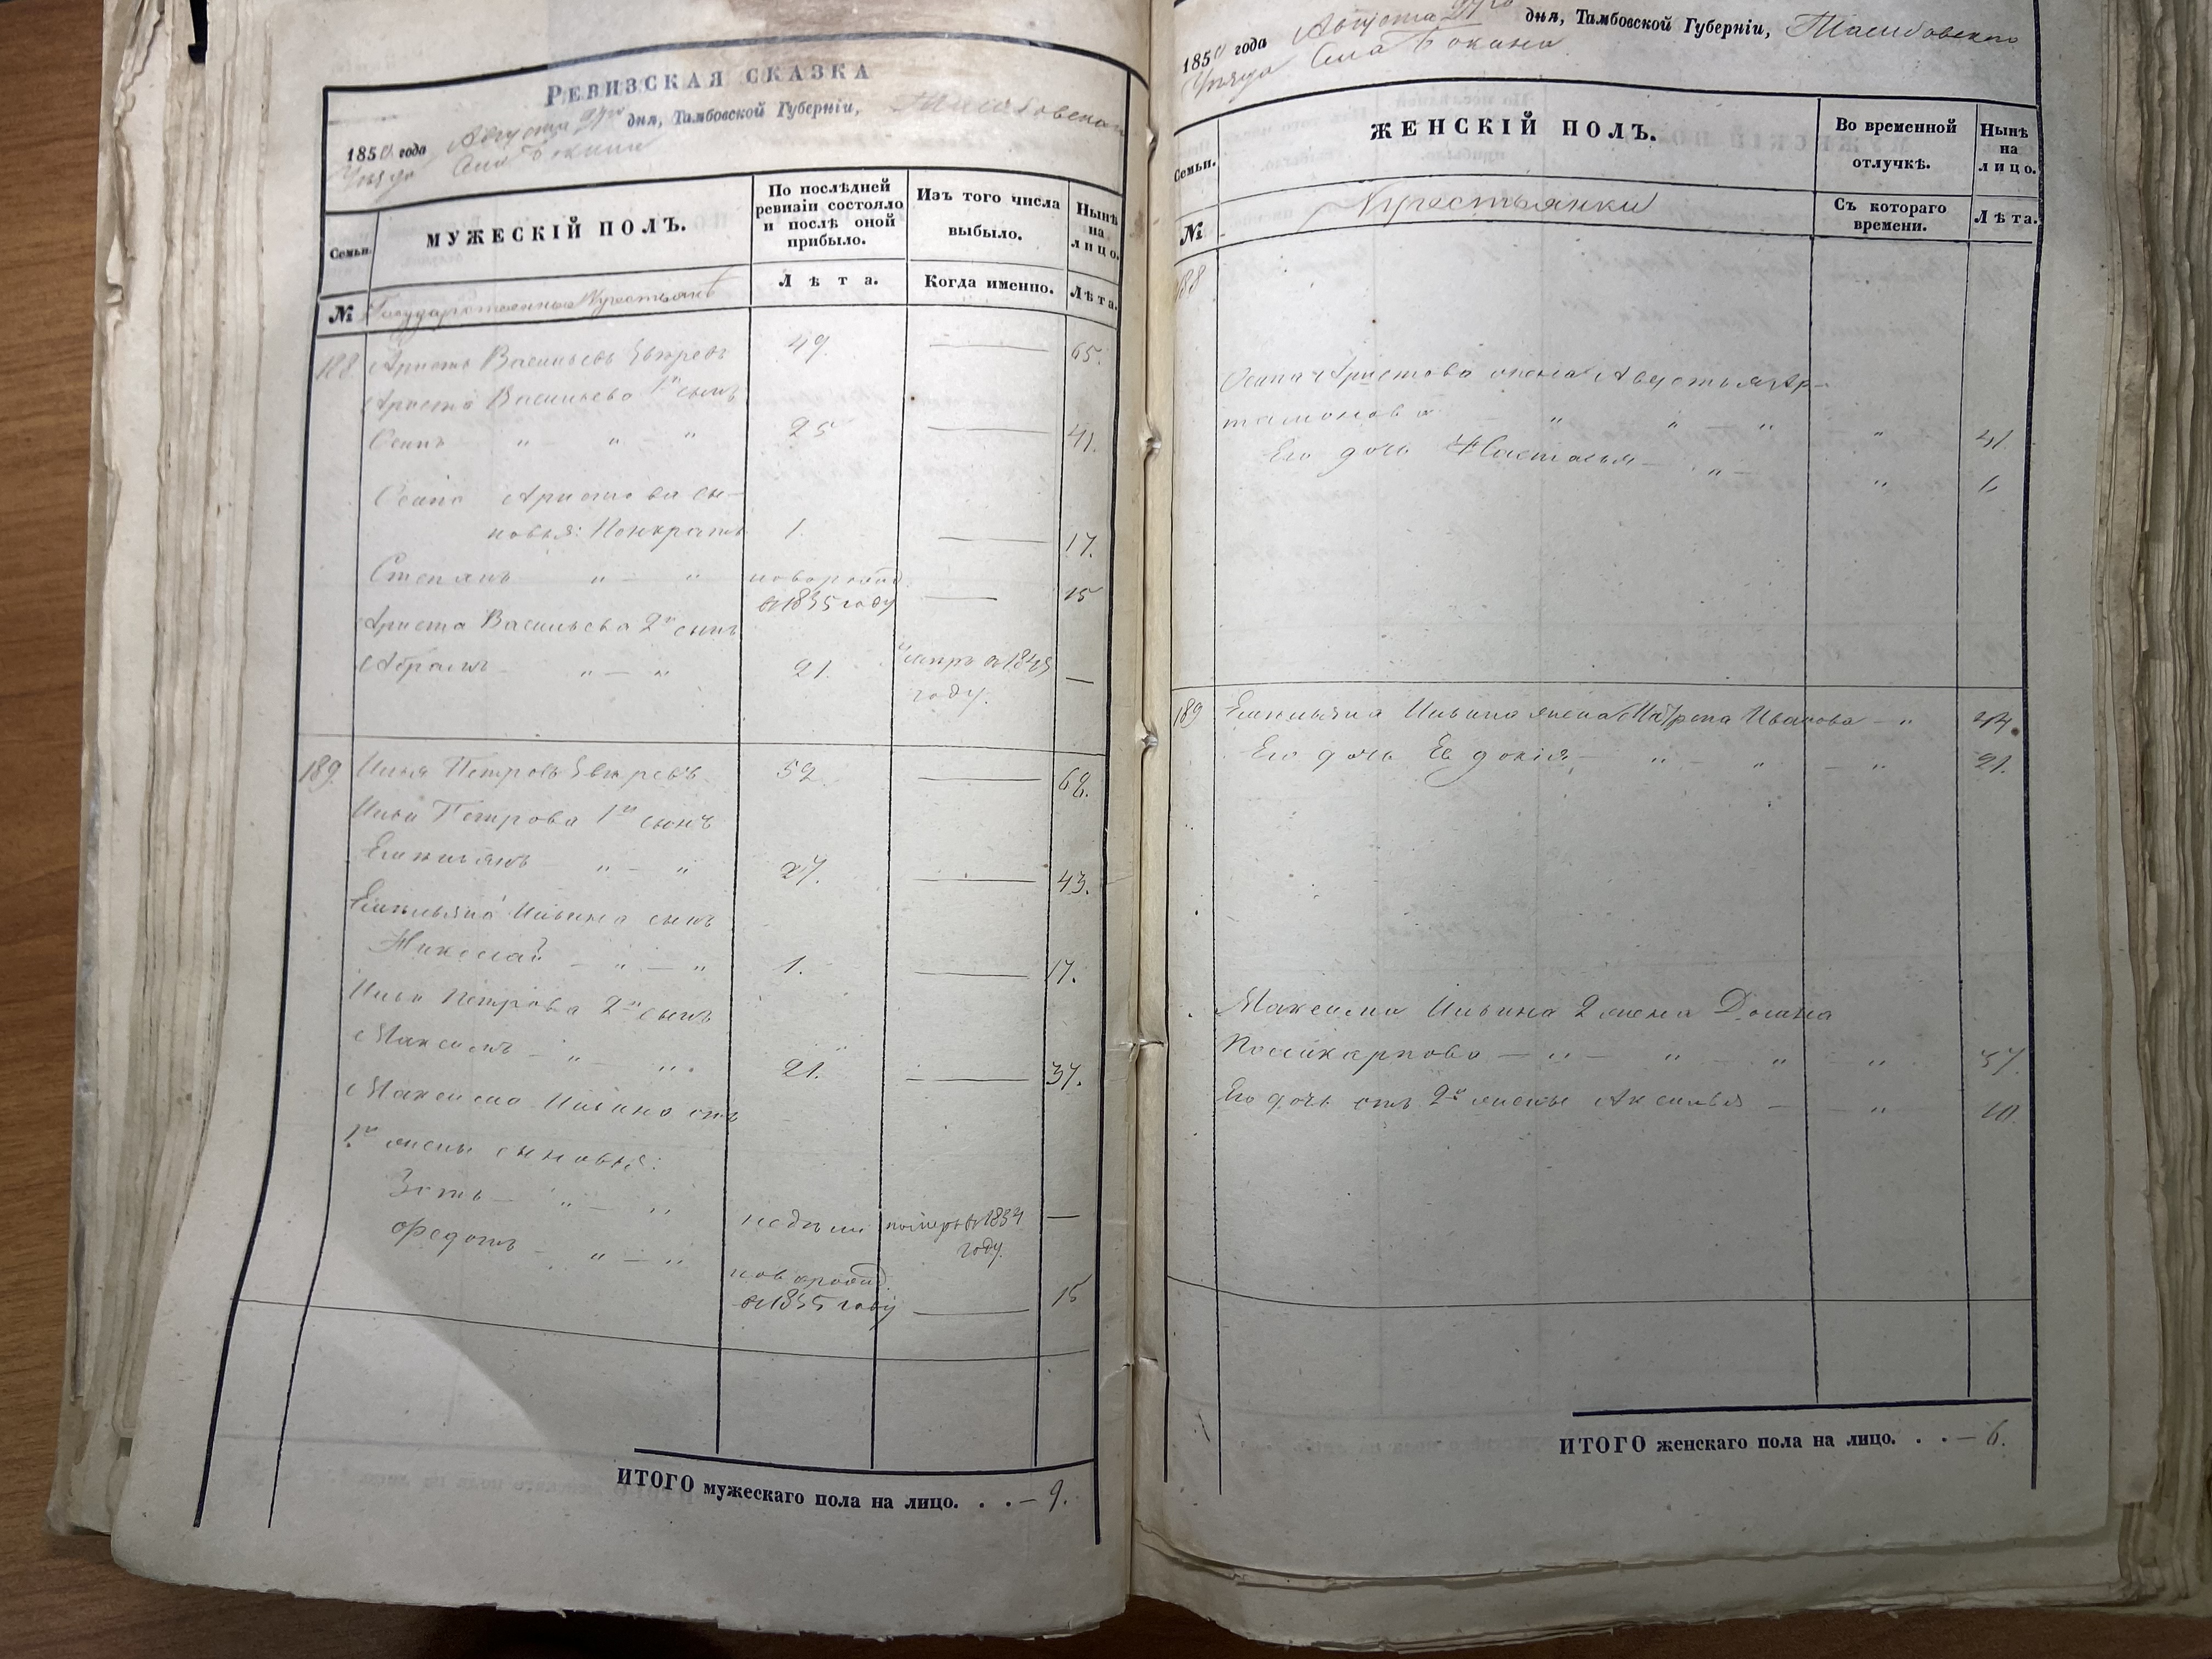 РЕВИЗСКАЯ СКАЗКА
1850 года Августа 27го дня, Тамбовской Губерніи, Тамбовскаго
Уѣзда Села Бокина
Семьи.
МУЖЕСКІЙ ПОЛЪ.
По послѣдней ревизіи состояло и послѣ оной прибыло.
Изъ того числа выбыло.
Нынѣ на лицо.
№
Государственные Крестьяне
Лѣта.
Когда именно.
Лѣта.
188. Аристъ Васильевъ 49. — 65.
Ариста Васильева 1й сынъ
Осипъ " — " — " 25 — 41.
Осипа Аристова сы-
новья: Понкратъ 1. — 17.
Степанъ " — " новорожд. — 15
в 1835 году
Ариста Васильева 2й сынъ
Абрамъ — " — " 21. умеръ в 1845 —
году.
189. Илья Петровъ 52 — 68.
Ильи Петрова 1й сынъ
Емельянъ — " — " 27. — 43.
Емельяна Ильина сынъ
Николай — " — " 1. — 17.
Ильи Петрова 2й сынъ
Максимъ — " — " 21. — 37.
Максима Ильина отъ
1й жены сыновья:
Зотъ — " — " недѣли померъ в 1834 —
году.
Федотъ — " — "
новорожд.
в 1835 году — 15
ИТОГО мужескаго пола на лицо. . . — 9.
1850 года Августа 27го дня, Тамбовской Губерніи, Тамбовскаго
Уѣзда Села Бокина
Семьи.
ЖЕНСКІЙ ПОЛЪ.
Во временной отлучкѣ.
Нынѣ на лицо.
№
Крестьянки
Съ котораго времени.
Лѣта.
188
Осипа Аристова жена Авдотья Ар-
тамонова " — " — " — " 41
Его дочь Настасья — " — " 6
189 Емельяна Ильина жена Матрена Иванова — " 44.
Его дочь Евдокія, — " — " — " 21.
Максима Ильина 2 жена Домна
Поликарпова — " — " — " " 37.
Его дочь отъ 2й жены Аксинья — — " 10.
ИТОГО женскаго пола на лицо. . . — 6.